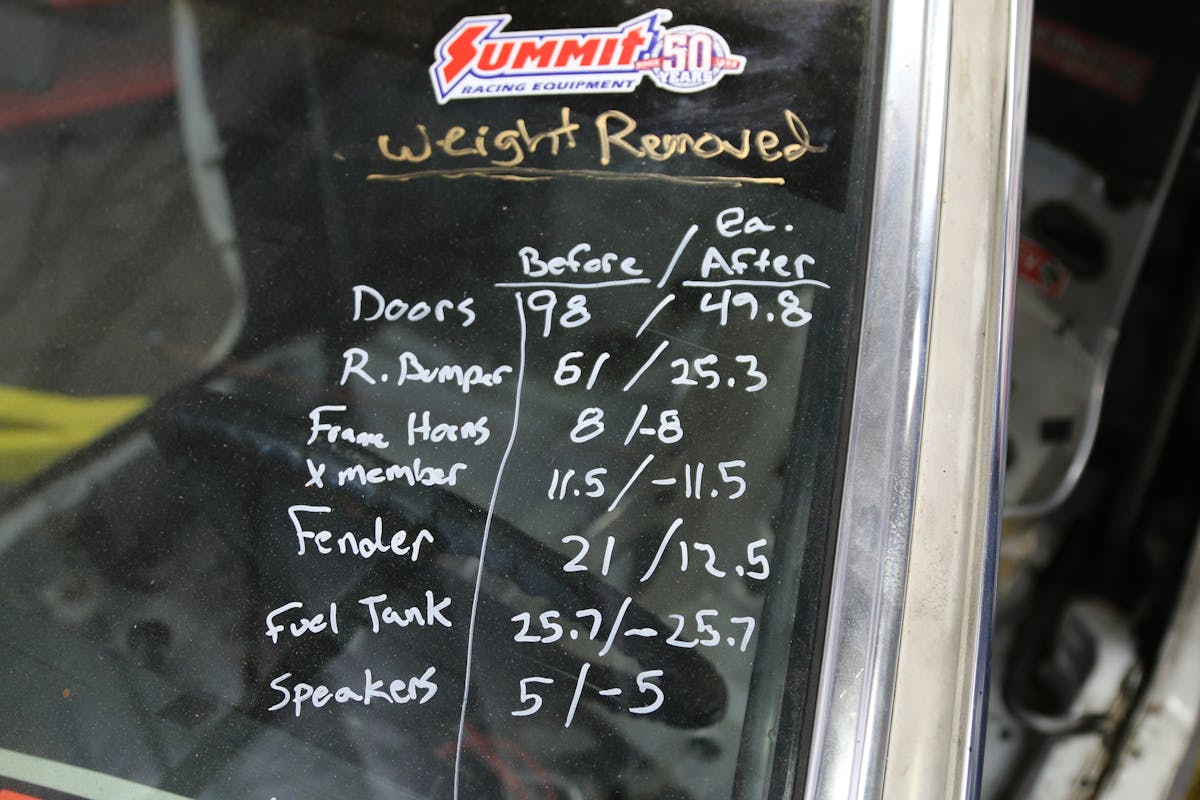 SUMMIT
RACING EQUIPMENT
50
YEARS
Weight Removed
ea.
Before / After
Doors 98 / 49.8
R. Bumper 61 / 25.3
Frame Horns 8 / -8
X member 11.5 / -11.5
Fender 21 / 12.5
Fuel Tank 25.7 / -25.7
Speakers 5 / -5